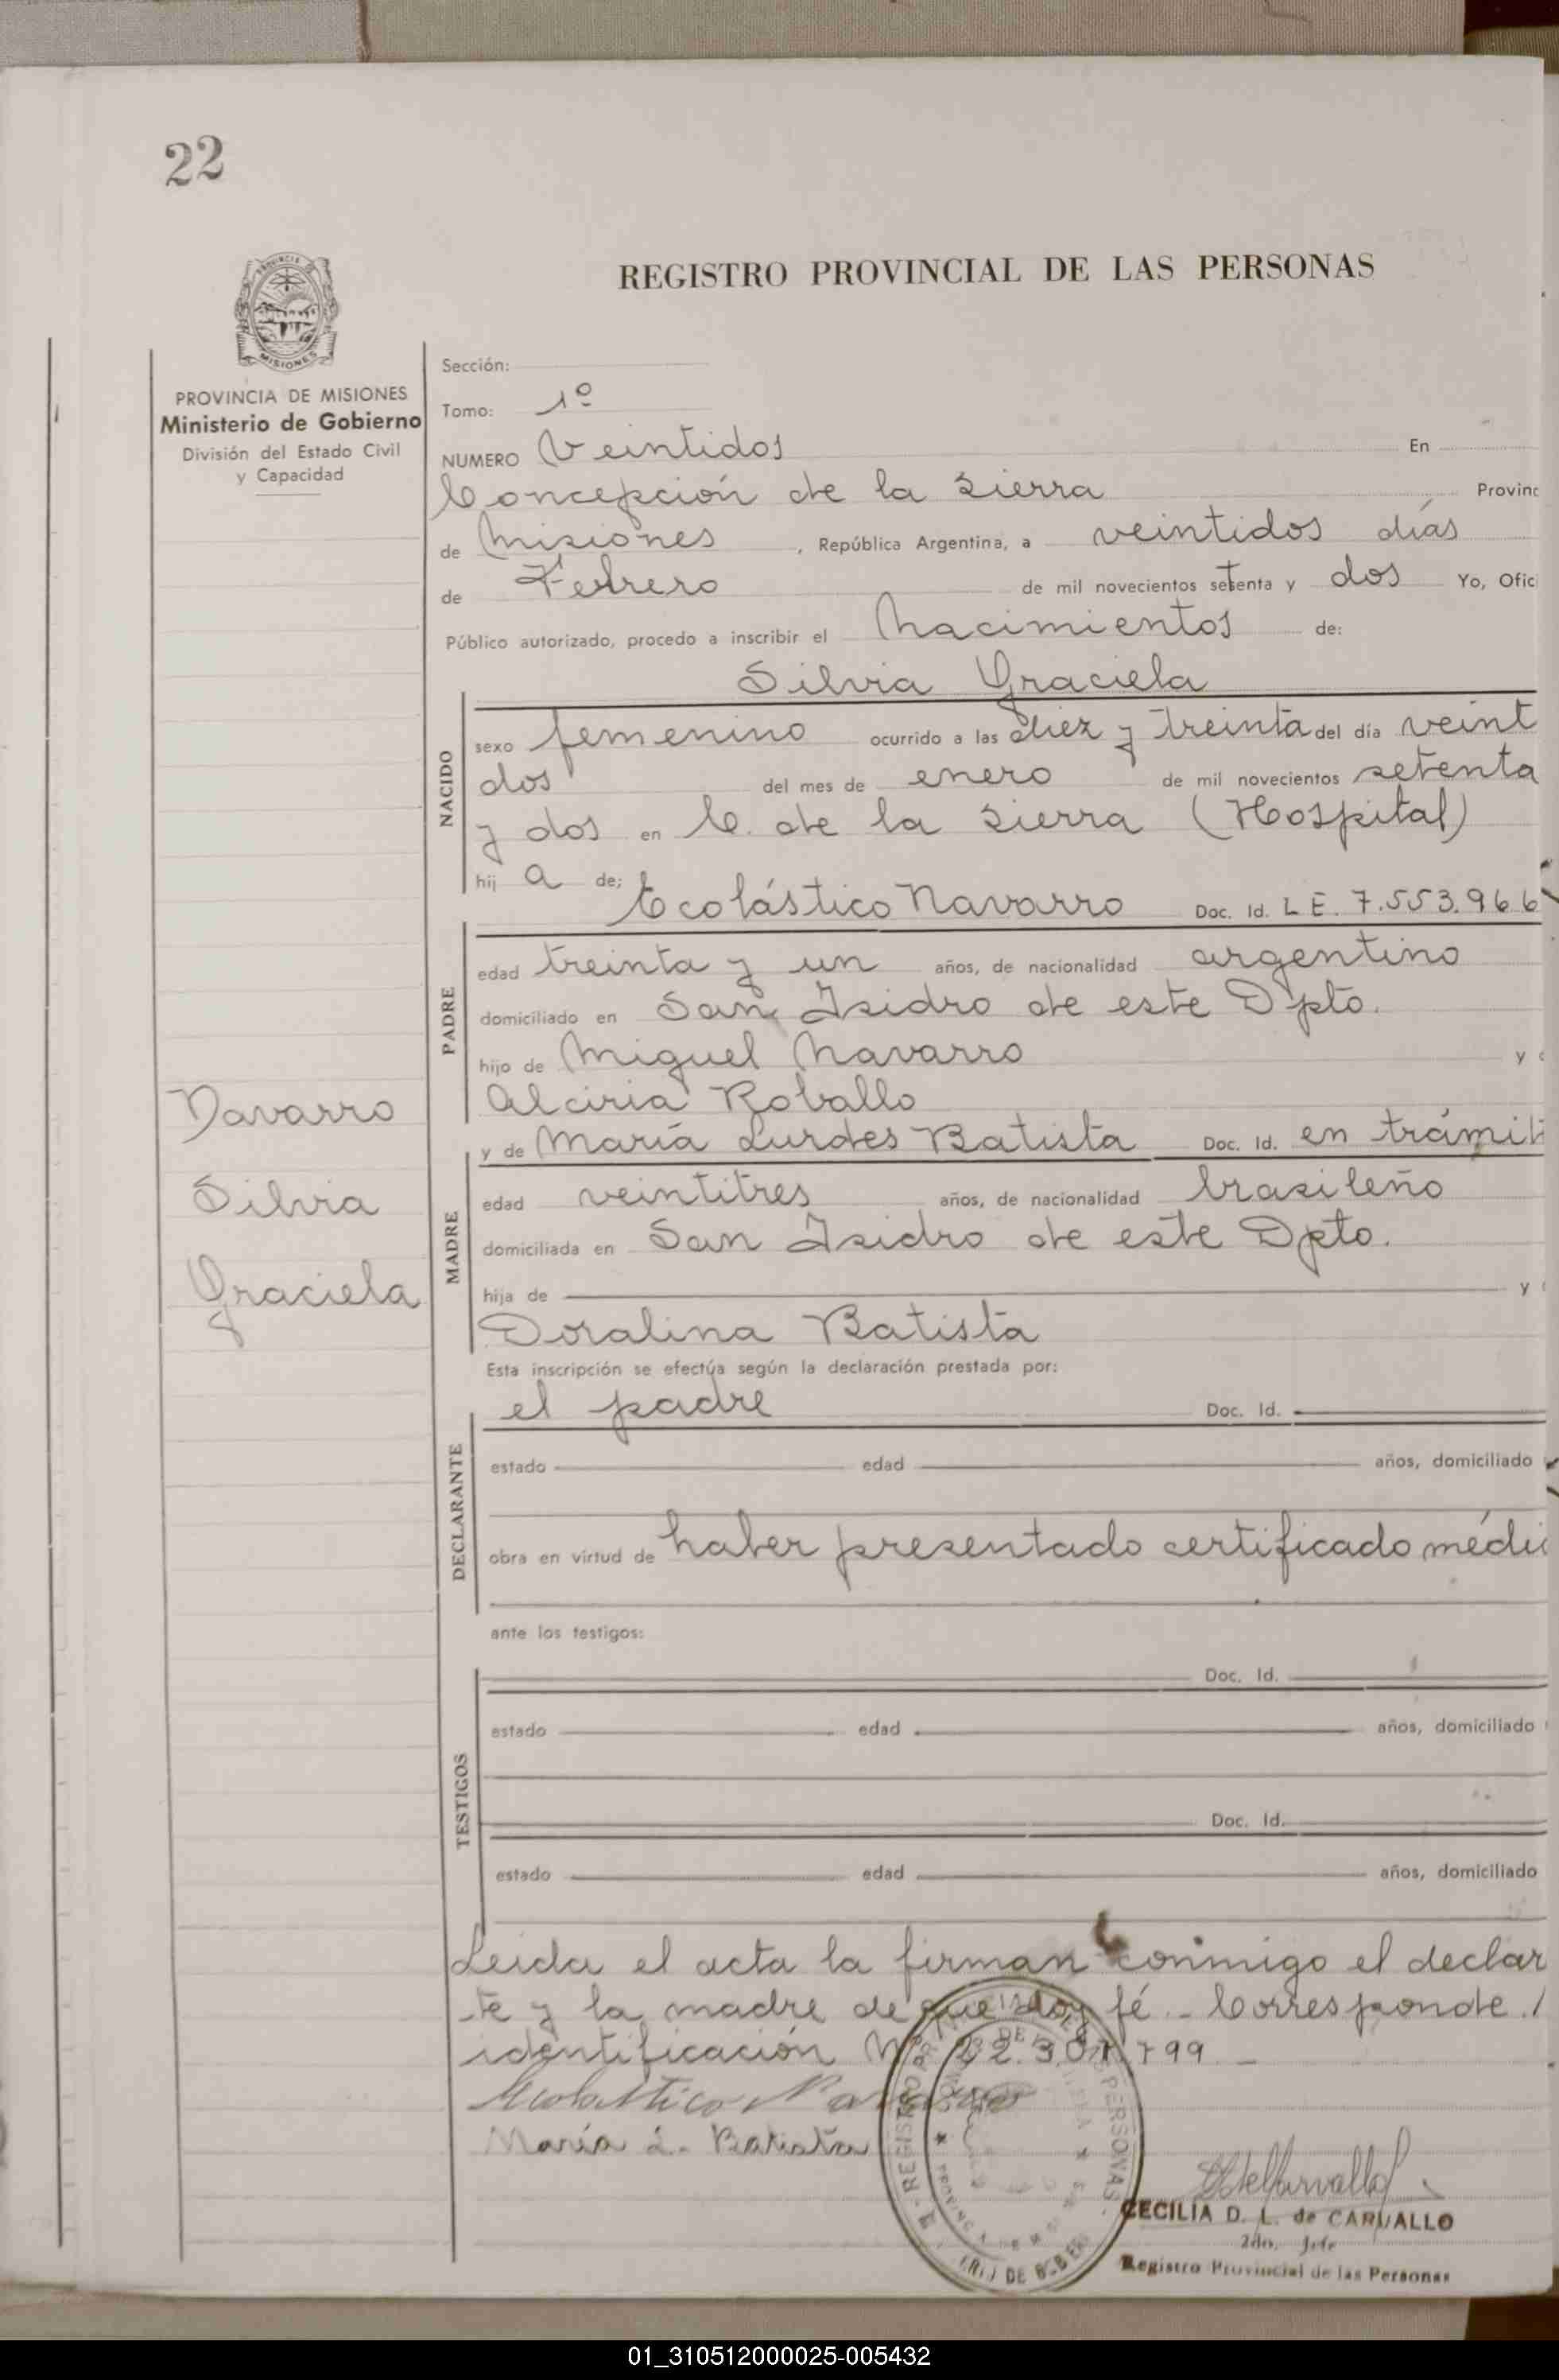 22
REGISTRO PROVINCIAL DE LAS PERSONAS
PROVINCIA DE MISIONES
Ministerio de Gobierno
División del Estado Civil
y Capacidad
Sección:
Tomo: 1º
NUMERO Veintidos En
Concepción de la Sierra Provinc
de Misiones, República Argentina, a veintidos días
de Febrero de mil novecientos setenta y dos Yo, Ofic
Público autorizado, procedo a inscribir el Nacimientos de:
Silvia Graciela
NACIDO
sexo femenino ocurrido a las diez y treinta del día veint
dos del mes de enero de mil novecientos setenta
y dos en C. de la Sierra (Hospital)
hij a de;
Ecolástico Navarro Doc. Id. L E. 7.553.966
PADRE
edad treinta y un años, de nacionalidad argentino
domiciliado en San Isidro de este Dpto.
hijo de Miguel Navarro y
Alciria Roballo
y de María Lurdes Batista Doc. Id. en trámit
MADRE
edad veintitres años, de nacionalidad brasileño
domiciliada en San Isidro de este Dpto.
hija de y
Doralina Batista
Navarro
Silvia
Graciela
Esta inscripción se efectúa según la declaración prestada por:
el padre Doc. Id.
DECLARANTE
estado edad años, domiciliado
obra en virtud de haber presentado certificado médi
ante los testigos:
Doc. Id.
TESTIGOS
estado edad años, domiciliado
Doc. Id.
estado edad años, domiciliado
Leida el acta la firman conmigo el declar
-te y la madre de que doy fé.- Corresponde
identificación Nº 22.301.799
Ecolastico Navarro
María L. Batista
CECILIA D. L. de CARVALLO
2do. Jefe
Registro Provincial de las Personas
01_310512000025-005432